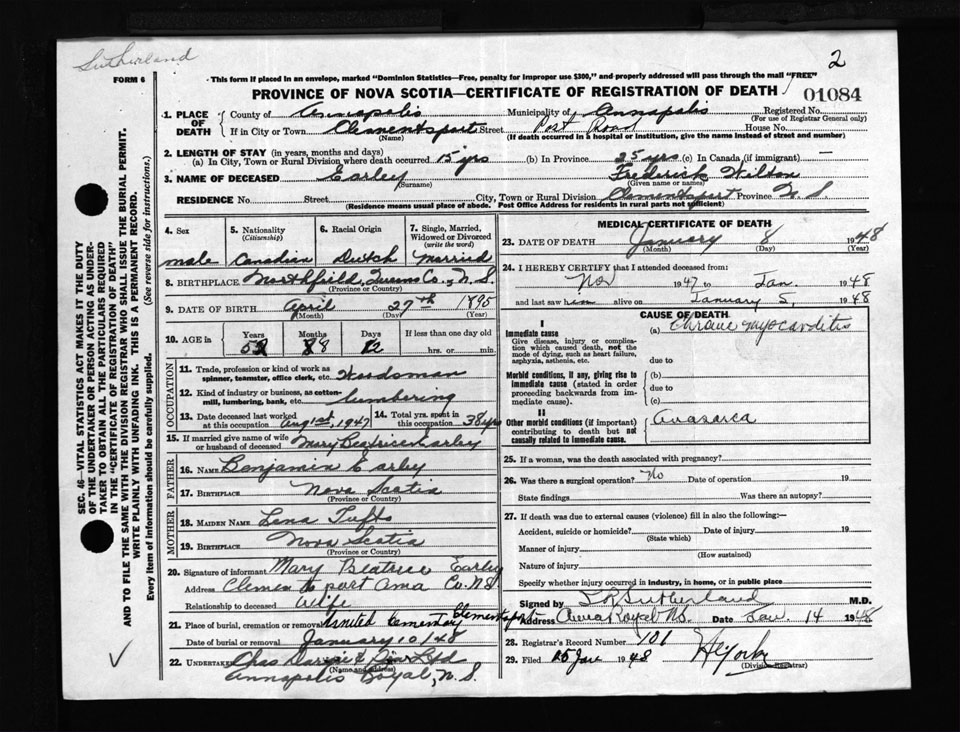 Sutherland
2
FORM 6
This form if placed in an envelope, marked "Dominion Statistics—Free, penalty for improper use $300," and properly addressed will pass through the mail "FREE"
PROVINCE OF NOVA SCOTIA—CERTIFICATE OF REGISTRATION OF DEATH
01084
1. PLACE OF DEATH
County of Annapolis Municipality of Annapolis Registered No.
(For use of Registrar General only)
If in City or Town Clementsport Street Post Road House No.
(Name) (If death occurred in a hospital or institution, give the name instead of street and number)
2. LENGTH OF STAY (in years, months and days)
(a) In City, Town or Rural Division where death occurred 15 yrs (b) In Province 25 yrs (c) In Canada (if immigrant) —
3. NAME OF DECEASED Earley Frederick Wilton
(Surname) (Given name or names)
RESIDENCE No. Street City, Town or Rural Division Clementsport Province N. S.
(Residence means usual place of abode. Post Office Address for residents in rural parts not sufficient)
4. Sex 5. Nationality (Citizenship) 6. Racial Origin 7. Single, Married, Widowed or Divorced (write the word)
male Canadian Dutch Married
8. BIRTHPLACE Northfield, Queens Co., N. S.
(Province or Country)
9. DATE OF BIRTH April 27th 1895
(Month) (Day) (Year)
10. AGE in Years Months Days If less than one day old
hrs. or min.
OCCUPATION
11. Trade, profession or kind of work as spinner, teamster, office clerk, etc. Woodsman
12. Kind of industry or business, as cotten-mill, lumbering, bank, etc. lumbering
13. Date deceased last worked at this occupation Aug 1st, 1947 14. Total yrs. spent in this occupation 38 yrs
15. If married give name of wife or husband of deceased Mary Beatrice Earley
FATHER
16. NAME Benjamin Earley
17. BIRTHPLACE Nova Scotia
(Province or Country)
MOTHER
18. MAIDEN NAME Lena Tufts
19. BIRTHPLACE Nova Scotia
(Province or Country)
20. Signature of informant Mary Beatrice Earley
Address Clementsport Anna Co. N.S
Relationship to deceased Wife
21. Place of burial, cremation or removal United Cementary Clementsport
Date of burial or removal January 10/48
22. UNDERTAKER Chas & Ltd
(Name and address)
Annapolis Royal, N. S.
MEDICAL CERTIFICATE OF DEATH
23. DATE OF DEATH January 8 1948
(Month) (Day) (Year)
24. I HEREBY CERTIFY that I attended deceased from:
Nov 1947 to Jan. 1948
and last saw him alive on January 5, 1948
CAUSE OF DEATH
I
Immediate cause (a) Chronic myocarditis
Give disease, injury or complication which caused death, not the mode of dying, such as heart failure, asphyxia, asthenia, etc.
due to
Morbid conditions, if any, giving rise to immediate cause (stated in order proceeding backwards from immediate cause).
(b)
due to
(c)
II
Other morbid conditions (if important) contributing to death but not causally related to immediate cause.
Anasarca
25. If a woman, was the death associated with pregnancy?
26. Was there a surgical operation? No Date of operation 19
State findings Was there an autopsy?
27. If death was due to external causes (violence) fill in also the following:—
Accident, suicide or homicide? Date of injury 19
(State which)
Manner of injury
(How sustained)
Nature of injury
Specify whether injury occurred in industry, in home, or in public place
Signed by Sutherland M.D.
Address Anna Royal N.S. Date Jan. 14 1948
28. Registrar's Record Number 101
29. Filed 15 Jan 1948
(Division Registrar)
SEC. 46—VITAL STATISTICS ACT MAKES IT THE DUTY
OF THE UNDERTAKER OR PERSON ACTING AS UNDER-
TAKER TO OBTAIN ALL THE PARTICULARS REQUIRED
IN THE "CERTIFICATE OF REGISTRATION OF DEATH"
AND TO FILE THE SAME WITH THE DIVISION REGISTRAR WHO SHALL ISSUE THE BURIAL PERMIT.
WRITE PLAINLY WITH UNFADING INK. THIS IS A PERMANENT RECORD.
Every item of information should be carefully supplied. (See reverse side for instructions.)